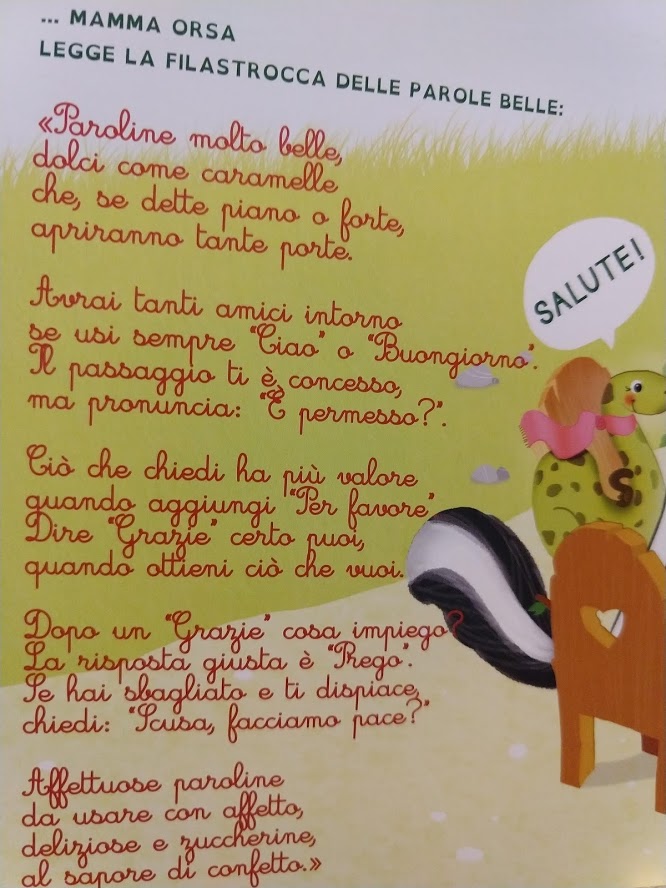 ... MAMMA ORSA
LEGGE LA FILASTROCCA DELLE PAROLE BELLE:
«Paroline molto belle,
dolci come caramelle
che, se dette piano o forte,
apriranno tante porte.
Avrai tanti amici intorno
se usi sempre "Ciao" o "Buongiorno".
Il passaggio ti è concesso,
ma pronuncia: "È permesso?".
Ciò che chiedi ha più valore
quando aggiungi "Per favore"
Dire "Grazie" certo puoi,
quando ottieni ciò che vuoi.
Dopo un "Grazie" cosa impiego?
La risposta giusta è "Prego".
Se hai sbagliato e ti dispiace,
chiedi: "Scusa, facciamo pace?"
Affettuose paroline
da usare con affetto,
deliziose e zuccherine,
al sapore di confetto.»
SALUTE!
S